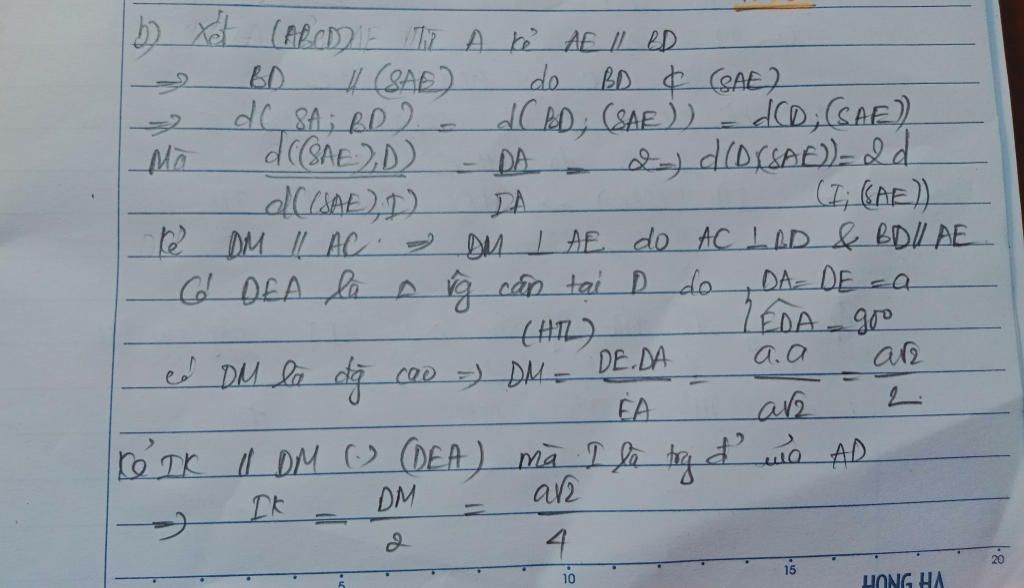 b) Xét (ABCD) Từ A kẻ AE // BD
=> BD // (SAE) do BD ⊄ (SAE)
=> d(SA; BD) = d(BD; (SAE)) = d(D; (SAE))
Mà d((SAE), D) / d((SAE), I) = DA / IA = 2 => d(D(SAE)) = 2d
(I; (SAE))
Kẻ DM // AC. => DM ⊥ AE do AC ⊥ BD & BD // AE
Có DEA là Δ vg cân tại D do { DA = DE = a
(HTL) EDA = 90°
có DM là đg cao => DM = DE.DA / EA = a.a / a√2 = a√2 / 2
Kẻ IK // DM (·) (DEA) mà I là trg đ' của AD
=> IK = DM / 2 = a√2 / 4
5 10 15 20
HONG HA